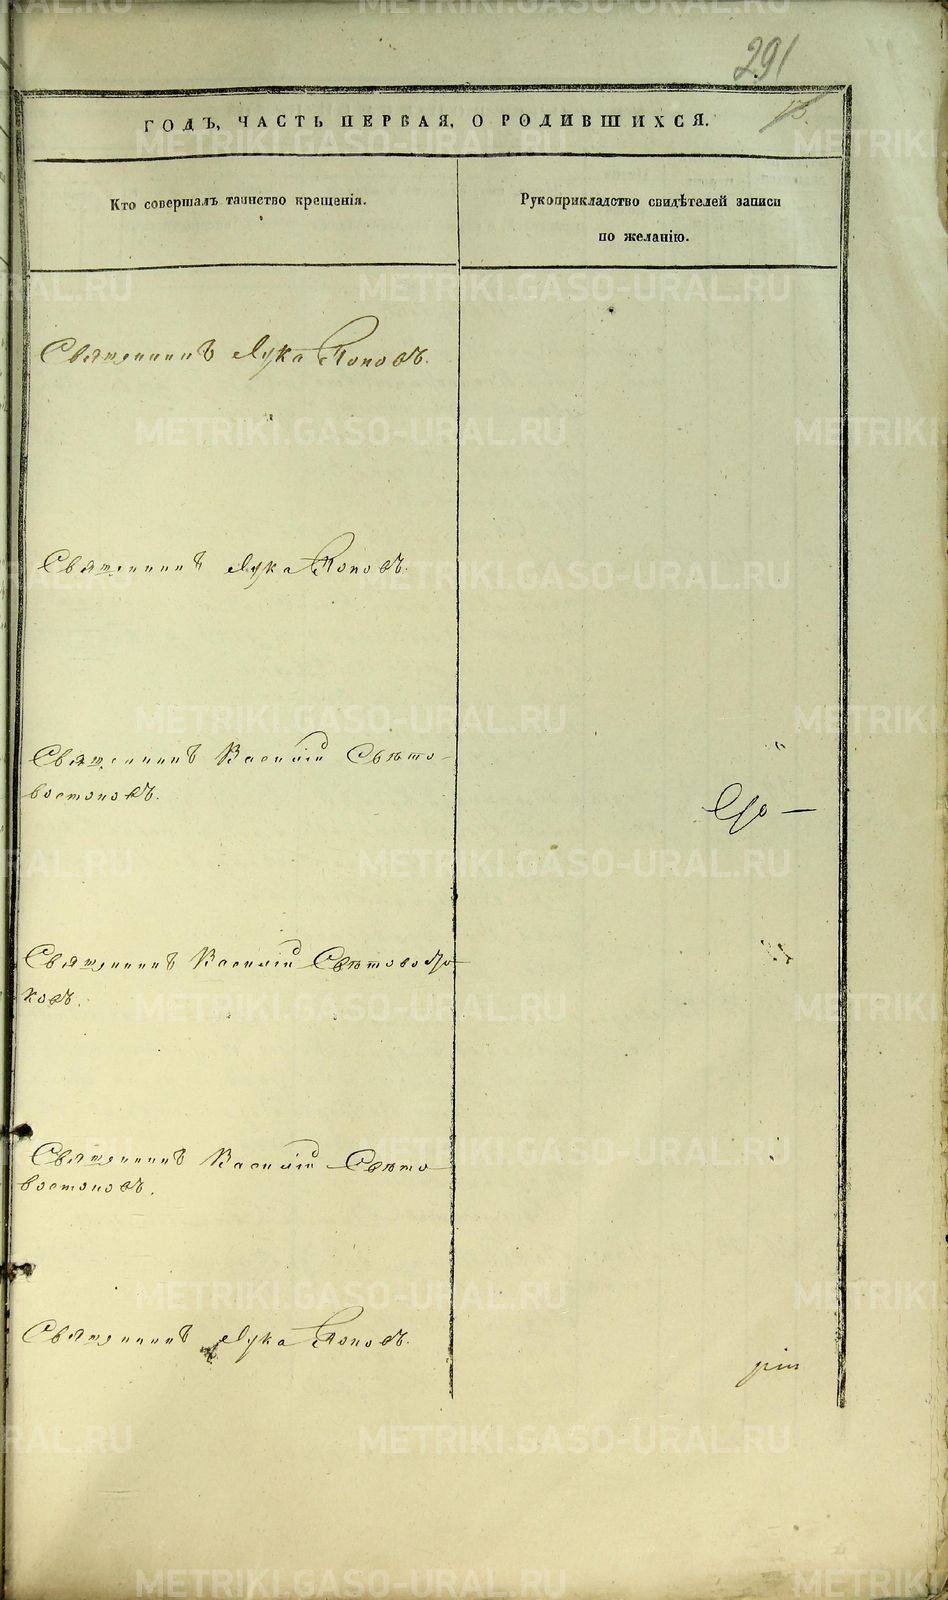 291
ГОДЪ, ЧАСТЬ ПЕРВАЯ, О РОДИВШИХСЯ.
Кто совершалъ таинство крещенія.
Рукоприкладство свидѣтелей записи
по желанію.
Священникъ Лука Поповъ.
Священникъ Лука Поповъ.
Священникъ Василій Свѣто-
востоковъ.
Священникъ Василій Свѣтовосто-
ковъ.
Священникъ Василій Свѣто-
востоковъ.
Священникъ Лука Поповъ.
рій
METRIKI.GASO-URAL.RU